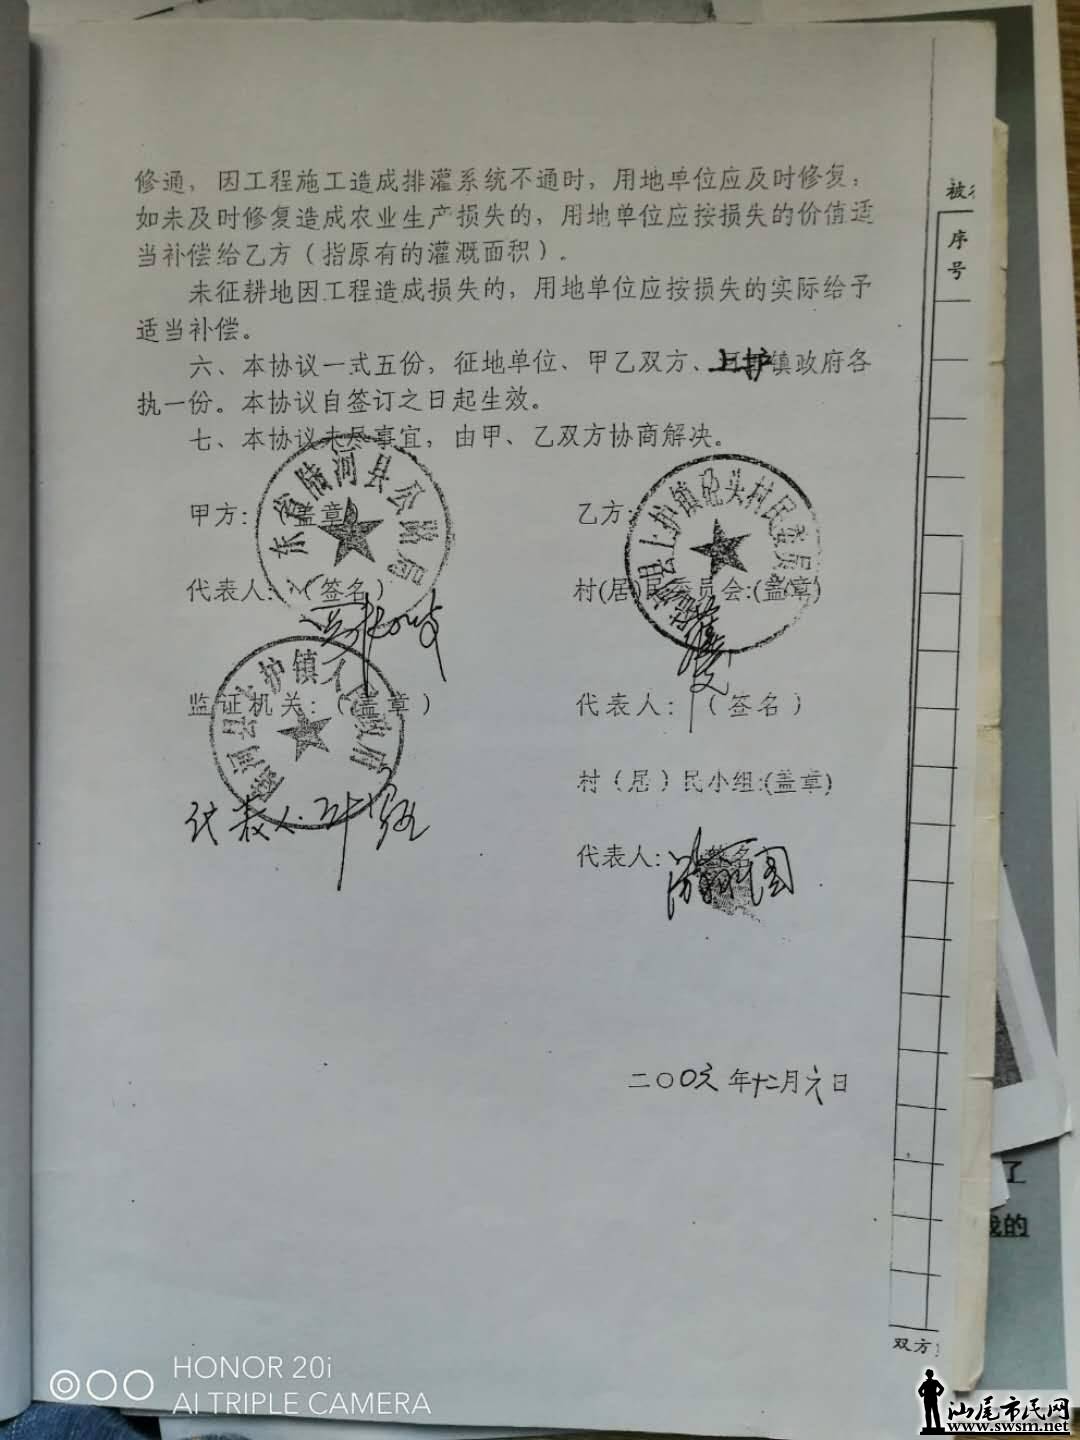 修通，因工程施工造成排灌系统不通时，用地单位应及时修复；
如未及时修复造成农业生产损失的，用地单位应按损失的价值适
当补偿给乙方（指原有的灌溉面积）。
未征耕地因工程造成损失的，用地单位应按损失的实际给予
适当补偿。
六、本协议一式五份，征地单位、甲乙双方、上护镇政府各
执一份。本协议自签订之日起生效。
七、本协议未尽事宜，由甲、乙双方协商解决。
甲方：（盖章）
东省陆河县公路局
代表人：（签名）
监证机关：（盖章）
河县上护镇人民政府
代表人：叶
乙方：
县上护镇砲头村民委员
村(居)民委员会:(盖章)
代表人：（签名）
村（居）民小组:(盖章)
代表人：签名
二〇〇六年十二月六日
被征
序
号
双方
了
我的
HONOR 20i
AI TRIPLE CAMERA
汕尾市民网
www.swsm.net